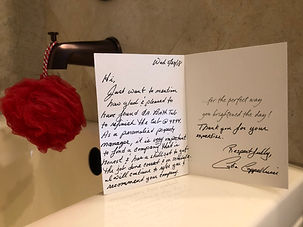 Wed
Hi,
Just want to mention
how glad & pleased to
have found Dr. Bath Tub
to refinish the tub @
As a personalized property
manager, it is very important
to find a company that is
honest & has a skillset to get
the job done correct &
I will continue to refer you &
recommend your company.
...for the perfect way
you brightened the day!
Thank you for your
expertise.
Respectfully,